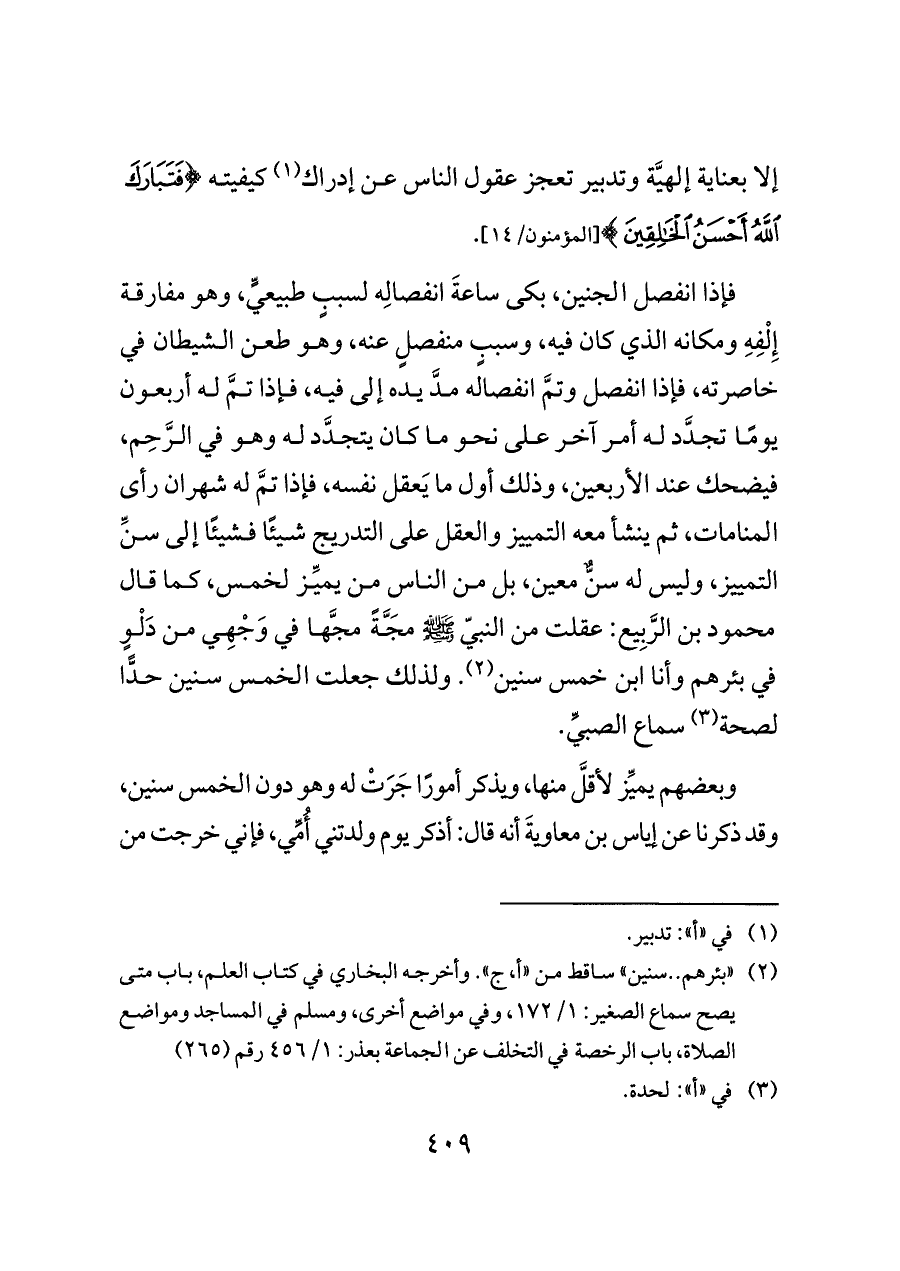 إلا بعناية إلهيَّة وتدبير تعجز عقول الناس عن إدراك(١) كيفيته ﴿فَتَبَارَكَ
ٱللَّهُ أَحْسَنُ ٱلْخَٰلِقِينَ﴾[المؤمنون/ ١٤].
فإذا انفصل الجنين، بكى ساعةَ انفصالِه لسببٍ طبيعيٍّ، وهو مفارقة
إِلْفِهِ ومكانه الذي كان فيه، وسببٍ منفصلٍ عنه، وهو طعن الشيطان في
خاصرته، فإذا انفصل وتمَّ انفصاله مدَّ يده إلى فيه، فإذا تمَّ له أربعون
يومًا تجدَّد له أمر آخر على نحو ما كان يتجدَّد له وهو في الرَّحِم،
فيضحك عند الأربعين، وذلك أول ما يَعقل نفسه، فإذا تمَّ له شهران رأى
المنامات، ثم ينشأ معه التمييز والعقل على التدريج شيئًا فشيئًا إلى سنِّ
التمييز، وليس له سنٌّ معين، بل من الناس من يميِّز لخمس، كما قال
محمود بن الرَّبِيع: عقلت من النبيّ ﷺ مجَّةً مجَّها في وَجْهِي من دَلْوٍ
في بئرهم وأنا ابن خمس سنين(٢). ولذلك جعلت الخمس سنين حدًّا
لصحة(٣) سماع الصبيِّ.
وبعضهم يميِّز لأقلَّ منها، ويذكر أمورًا جَرَتْ له وهو دون الخمس سنين،
وقد ذكرنا عن إياس بن معاويةَ أنه قال: أذكر يوم ولدتني أُمِّي، فإني خرجت من
(١) في «أ»: تدبير.
(٢) «بئرهم..سنين» ساقط من «أ، ج». وأخرجه البخاري في كتاب العلم، باب متى
يصح سماع الصغير: ١/ ١٧٢، وفي مواضع أخرى، ومسلم في المساجد ومواضع
الصلاة، باب الرخصة في التخلف عن الجماعة بعذر: ١/ ٤٥٦ رقم (٢٦٥)
(٣) في «أ»: لحدة.
٤٠٩